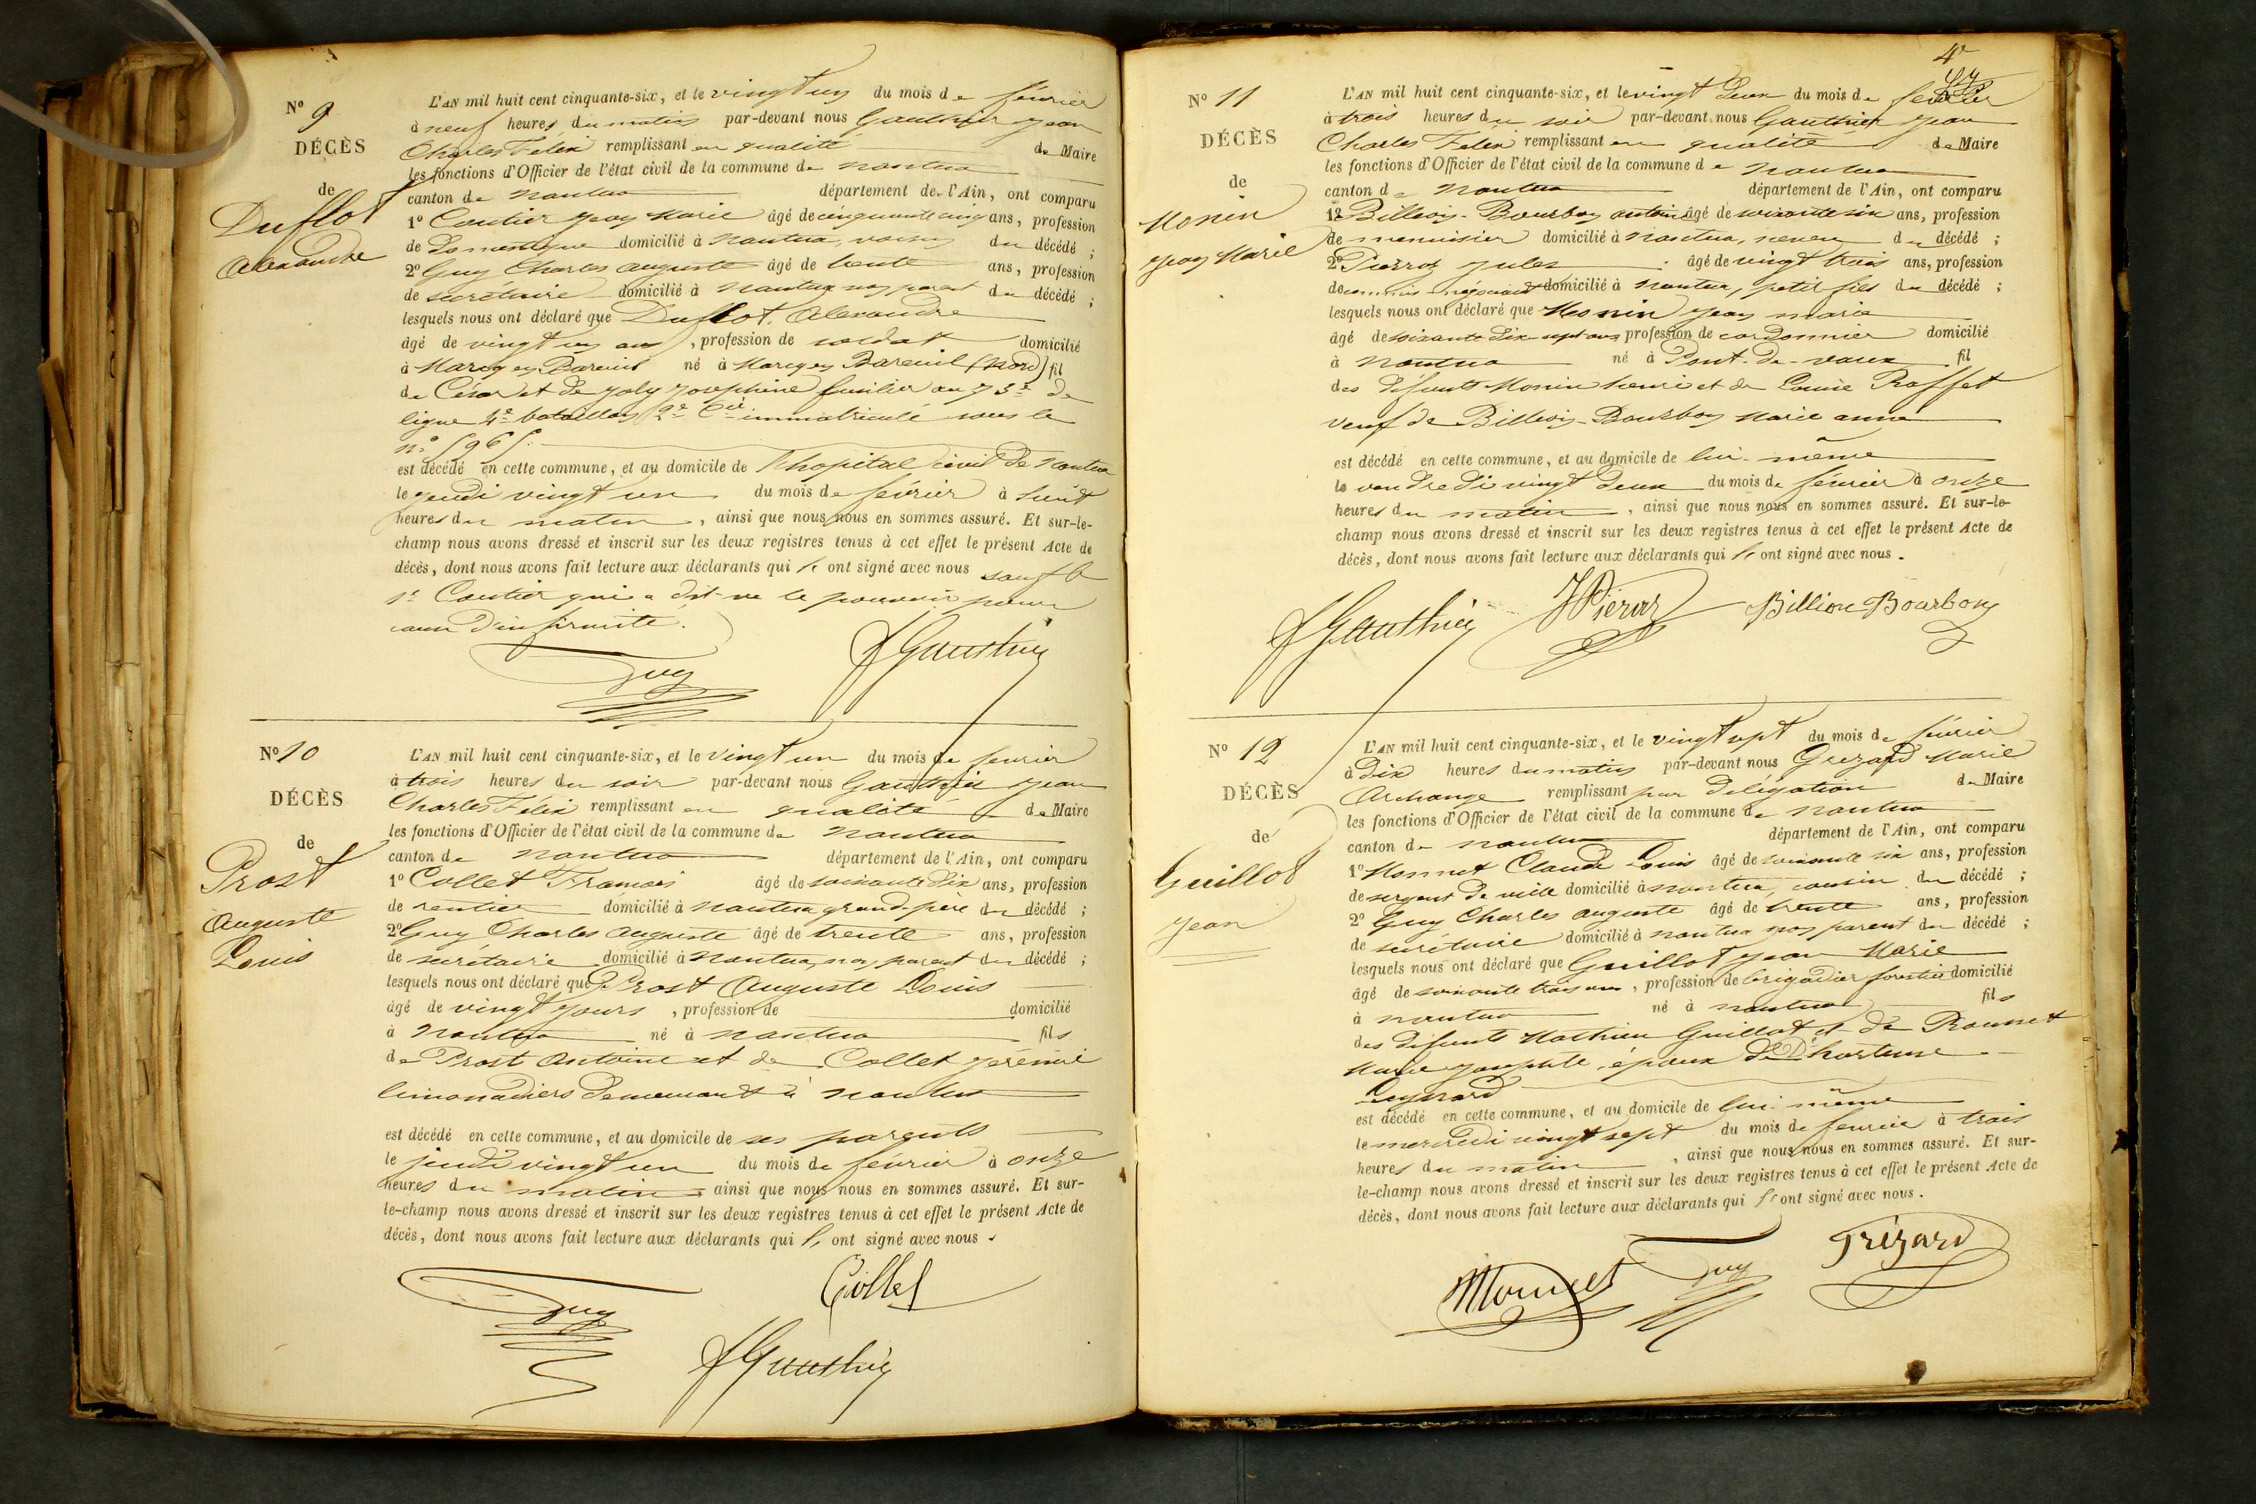 N° 9
DÉCÈS
de
Duflot
Alexandre
L'AN mil huit cent cinquante-six, et le vingt un du mois de février
à neuf heures du matin par-devant nous Gauthier Jean
Charles Felix remplissant en qualité de Maire
les fonctions d'Officier de l'état civil de la commune de nantua
canton de nantua département de l'Ain, ont comparu
1° Coutier Jean Marie âgé de cinquante cinq ans, profession
de domestique domicilié à nantua, voisin du décédé ;
2° Guy Charles auguste âgé de trente ans, profession
de secrétaire domicilié à nantua non parent du décédé ;
lesquels nous ont déclaré que Duflot Alexandre
âgé de vingt un ans, profession de soldat domicilié
à Marcq en Bareuil né à Marcq en Bareuil (nord) fil
de César et de Joly Josephine fusilier au 73e de
ligne 4e bataillon 2e Cie immatriculé sous le
n° 5965
est décédé en cette commune, et au domicile de l'hopital civil de nantua
le jeudi vingt un du mois de février à huit
heures du matin, ainsi que nous nous en sommes assuré. Et sur-le-
champ nous avons dressé et inscrit sur les deux registres tenus à cet effet le présent Acte de
décès, dont nous avons fait lecture aux déclarants qui l' ont signé avec nous sauf le
sr Coutier qui a dit ne le pouvoir pour
cause d'infirmité.
Guy
JGauthier
N° 10
DÉCÈS
de
Prost
Auguste
Louis
L'AN mil huit cent cinquante-six, et le vingt un du mois de fevrier
à trois heures du soir par-devant nous Gauthier Jean
Charles Felix remplissant en qualité de Maire
les fonctions d'Officier de l'état civil de la commune de nantua
canton de nantua département de l'Ain, ont comparu
1° Collet Francois âgé de soixante dix ans, profession
de rentier domicilié à nantua grand père du décédé ;
2° Guy Charles auguste âgé de trente ans, profession
de secrétaire domicilié à nantua, non parent du décédé ;
lesquels nous ont déclaré que Prost Auguste Louis
âgé de vingt jours, profession de domicilié
à nantua né à nantua fils
de Prost Antoine et de Collet
limonadiers demeurant à nantua
est décédé en cette commune, et au domicile de ses parents
le jeudi vingt un du mois de février à onze
heures du matin ainsi que nous nous en sommes assuré. Et sur-
le-champ nous avons dressé et inscrit sur les deux registres tenus à cet effet le présent Acte de
décès, dont nous avons fait lecture aux déclarants qui l' ont signé avec nous.
Guy
Collet
JGauthier
4
N° 11
DÉCÈS
de
Monin
Jean Marie
L'AN mil huit cent cinquante-six, et le vingt deux du mois de fevrier
à trois heures du soir par-devant nous Gauthier Jean
Charles Felix remplissant en qualité de Maire
les fonctions d'Officier de l'état civil de la commune de nantua
canton de nantua département de l'Ain, ont comparu
1° Billion-Bourbon antoine âgé de soixante six ans, profession
de menuisier domicilié à nantua, neveu du décédé ;
2° Pierroz Jules âgé de vingt trois ans, profession
de commis négociant domicilié à nantua, petit fils du décédé ;
lesquels nous ont déclaré que Monin Jean marie
âgé de soixante dix sept ans profession de cordonnier domicilié
à nantua né à Pont-de-vaux fil
des défunts Monin henri et de Louise Raffet
veuf de Billion-Bourbon Marie anne
est décédé en cette commune, et au domicile de lui-même
le vendredi vingt deux du mois de février à onze
heures du matin, ainsi que nous nous en sommes assuré. Et sur-le-
champ nous avons dressé et inscrit sur les deux registres tenus à cet effet le présent Acte de
décès, dont nous avons fait lecture aux déclarants qui l' ont signé avec nous.
JGauthier
JPieroz
Billion Bourbon
N° 12
DÉCÈS
de
Guillot
Jean
L'AN mil huit cent cinquante-six, et le vingt sept du mois de février
à dix heures du matin par-devant nous Grezard Marie
Archange remplissant par délégation de Maire
les fonctions d'Officier de l'état civil de la commune de nantua
canton de nantua département de l'Ain, ont comparu
1° Monnet Claude Louis âgé de soixante six ans, profession
de sergent de ville domicilié à nantua, cousin du décédé ;
2° Guy Charles auguste âgé de trente ans, profession
de secrétaire domicilié à nantua non parent du décédé ;
lesquels nous ont déclaré que Guillot Jean Marie
âgé de soixante trois ans, profession de brigadier forestier domicilié
à nantua né à nantua fils
des défunts Mathieu Guillot et de Rousset
Marie Josephte, époux de D hortense
est décédé en cette commune, et au domicile de lui-même
le mercredi vingt sept du mois de fevrier à trois
heures du matin, ainsi que nous nous en sommes assuré. Et sur-
le-champ nous avons dressé et inscrit sur les deux registres tenus à cet effet le présent Acte de
décès, dont nous avons fait lecture aux déclarants qui l' ont signé avec nous.
Monnet
Guy
Grézard